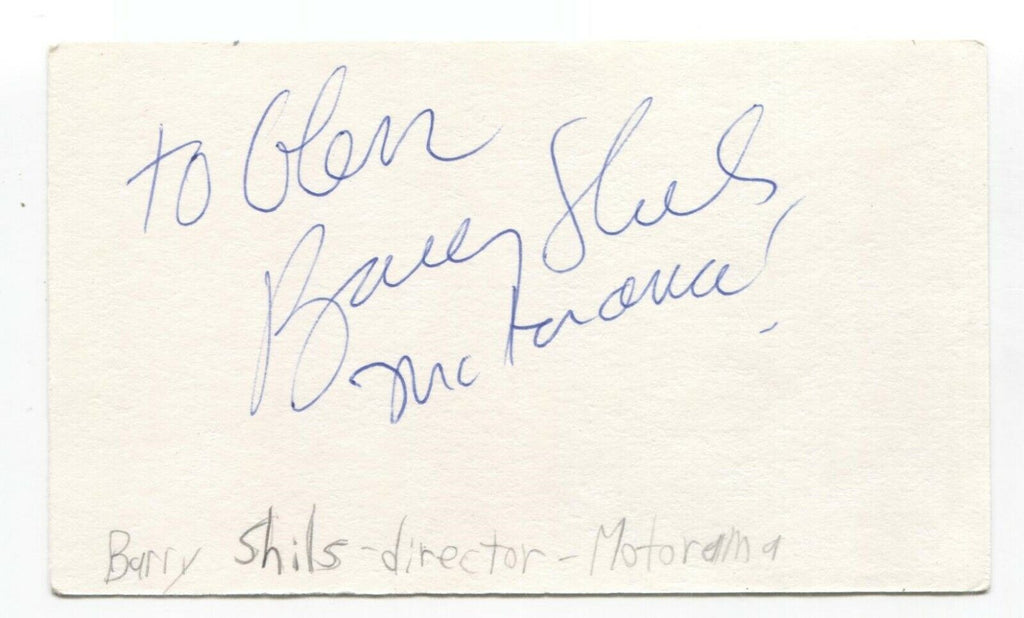 to Glen
Barry Shils
Motorama!
Barry Shils - director - Motorama